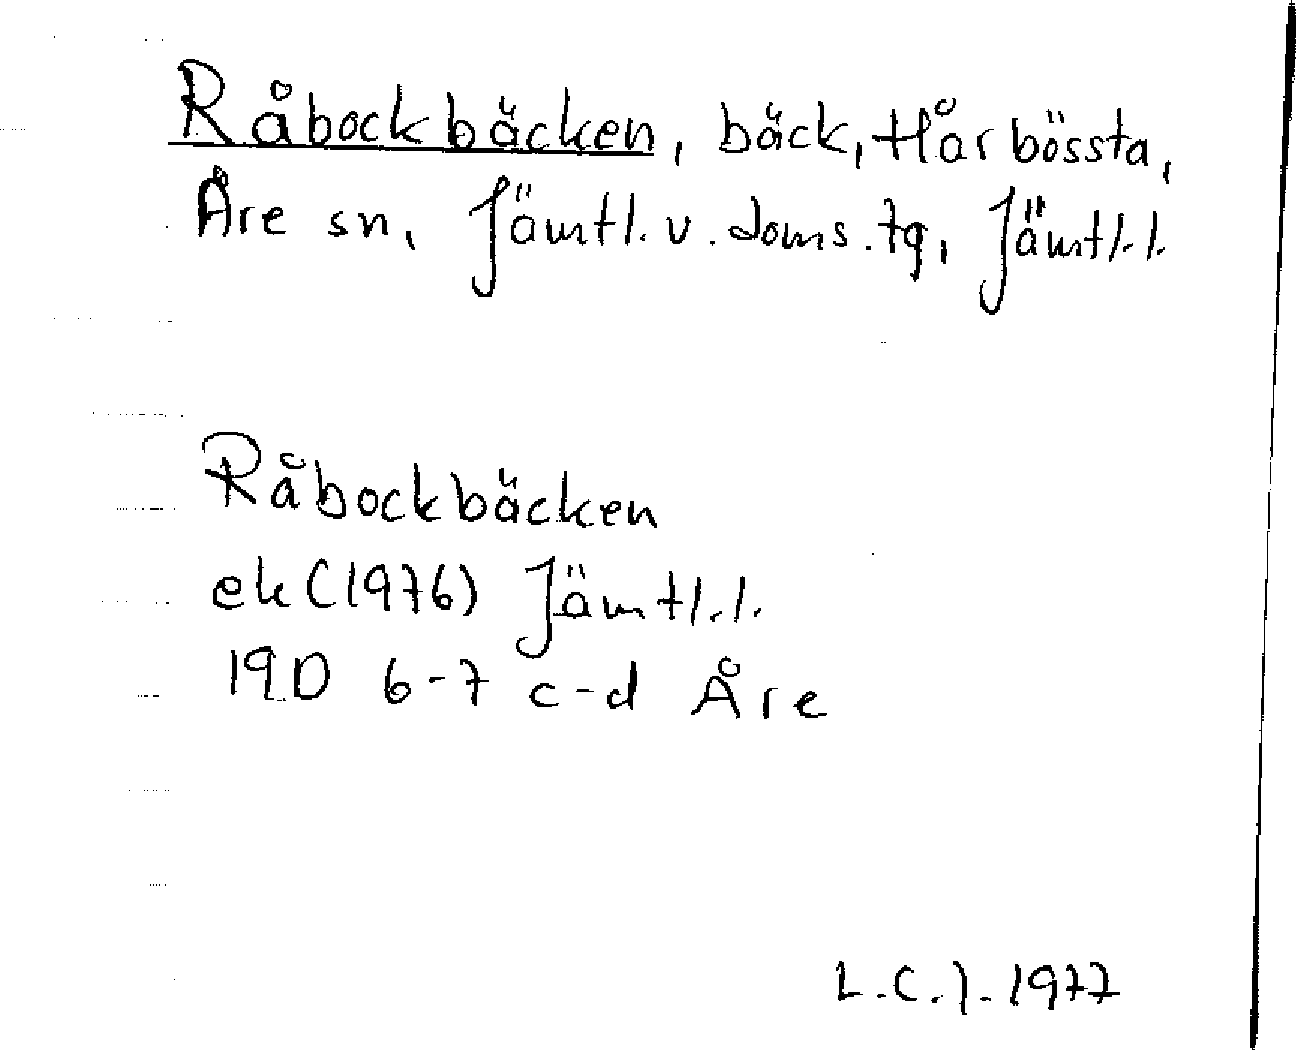 Råbockbäcken, bäck, Hårbössta,
Åre sn, Jämtl. v. doms. tg, Jämtl. l.
Råbockbäcken
ek (1976) Jämtl. l.
19D 6-7 c-d Åre
L.C.J. 1977